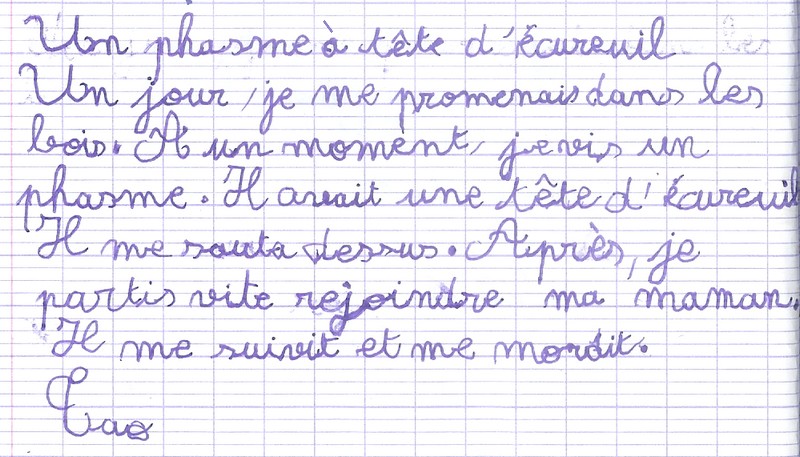 Un phasme à tête d'écureuil
Un jour, je me promenais dans les
bois. A un moment, je vis un
phasme. Il avait une tête d'écureuil
Il me sauta dessus. Après, je
partis vite rejoindre ma maman.
Il me suivit et me mordit.
Tao